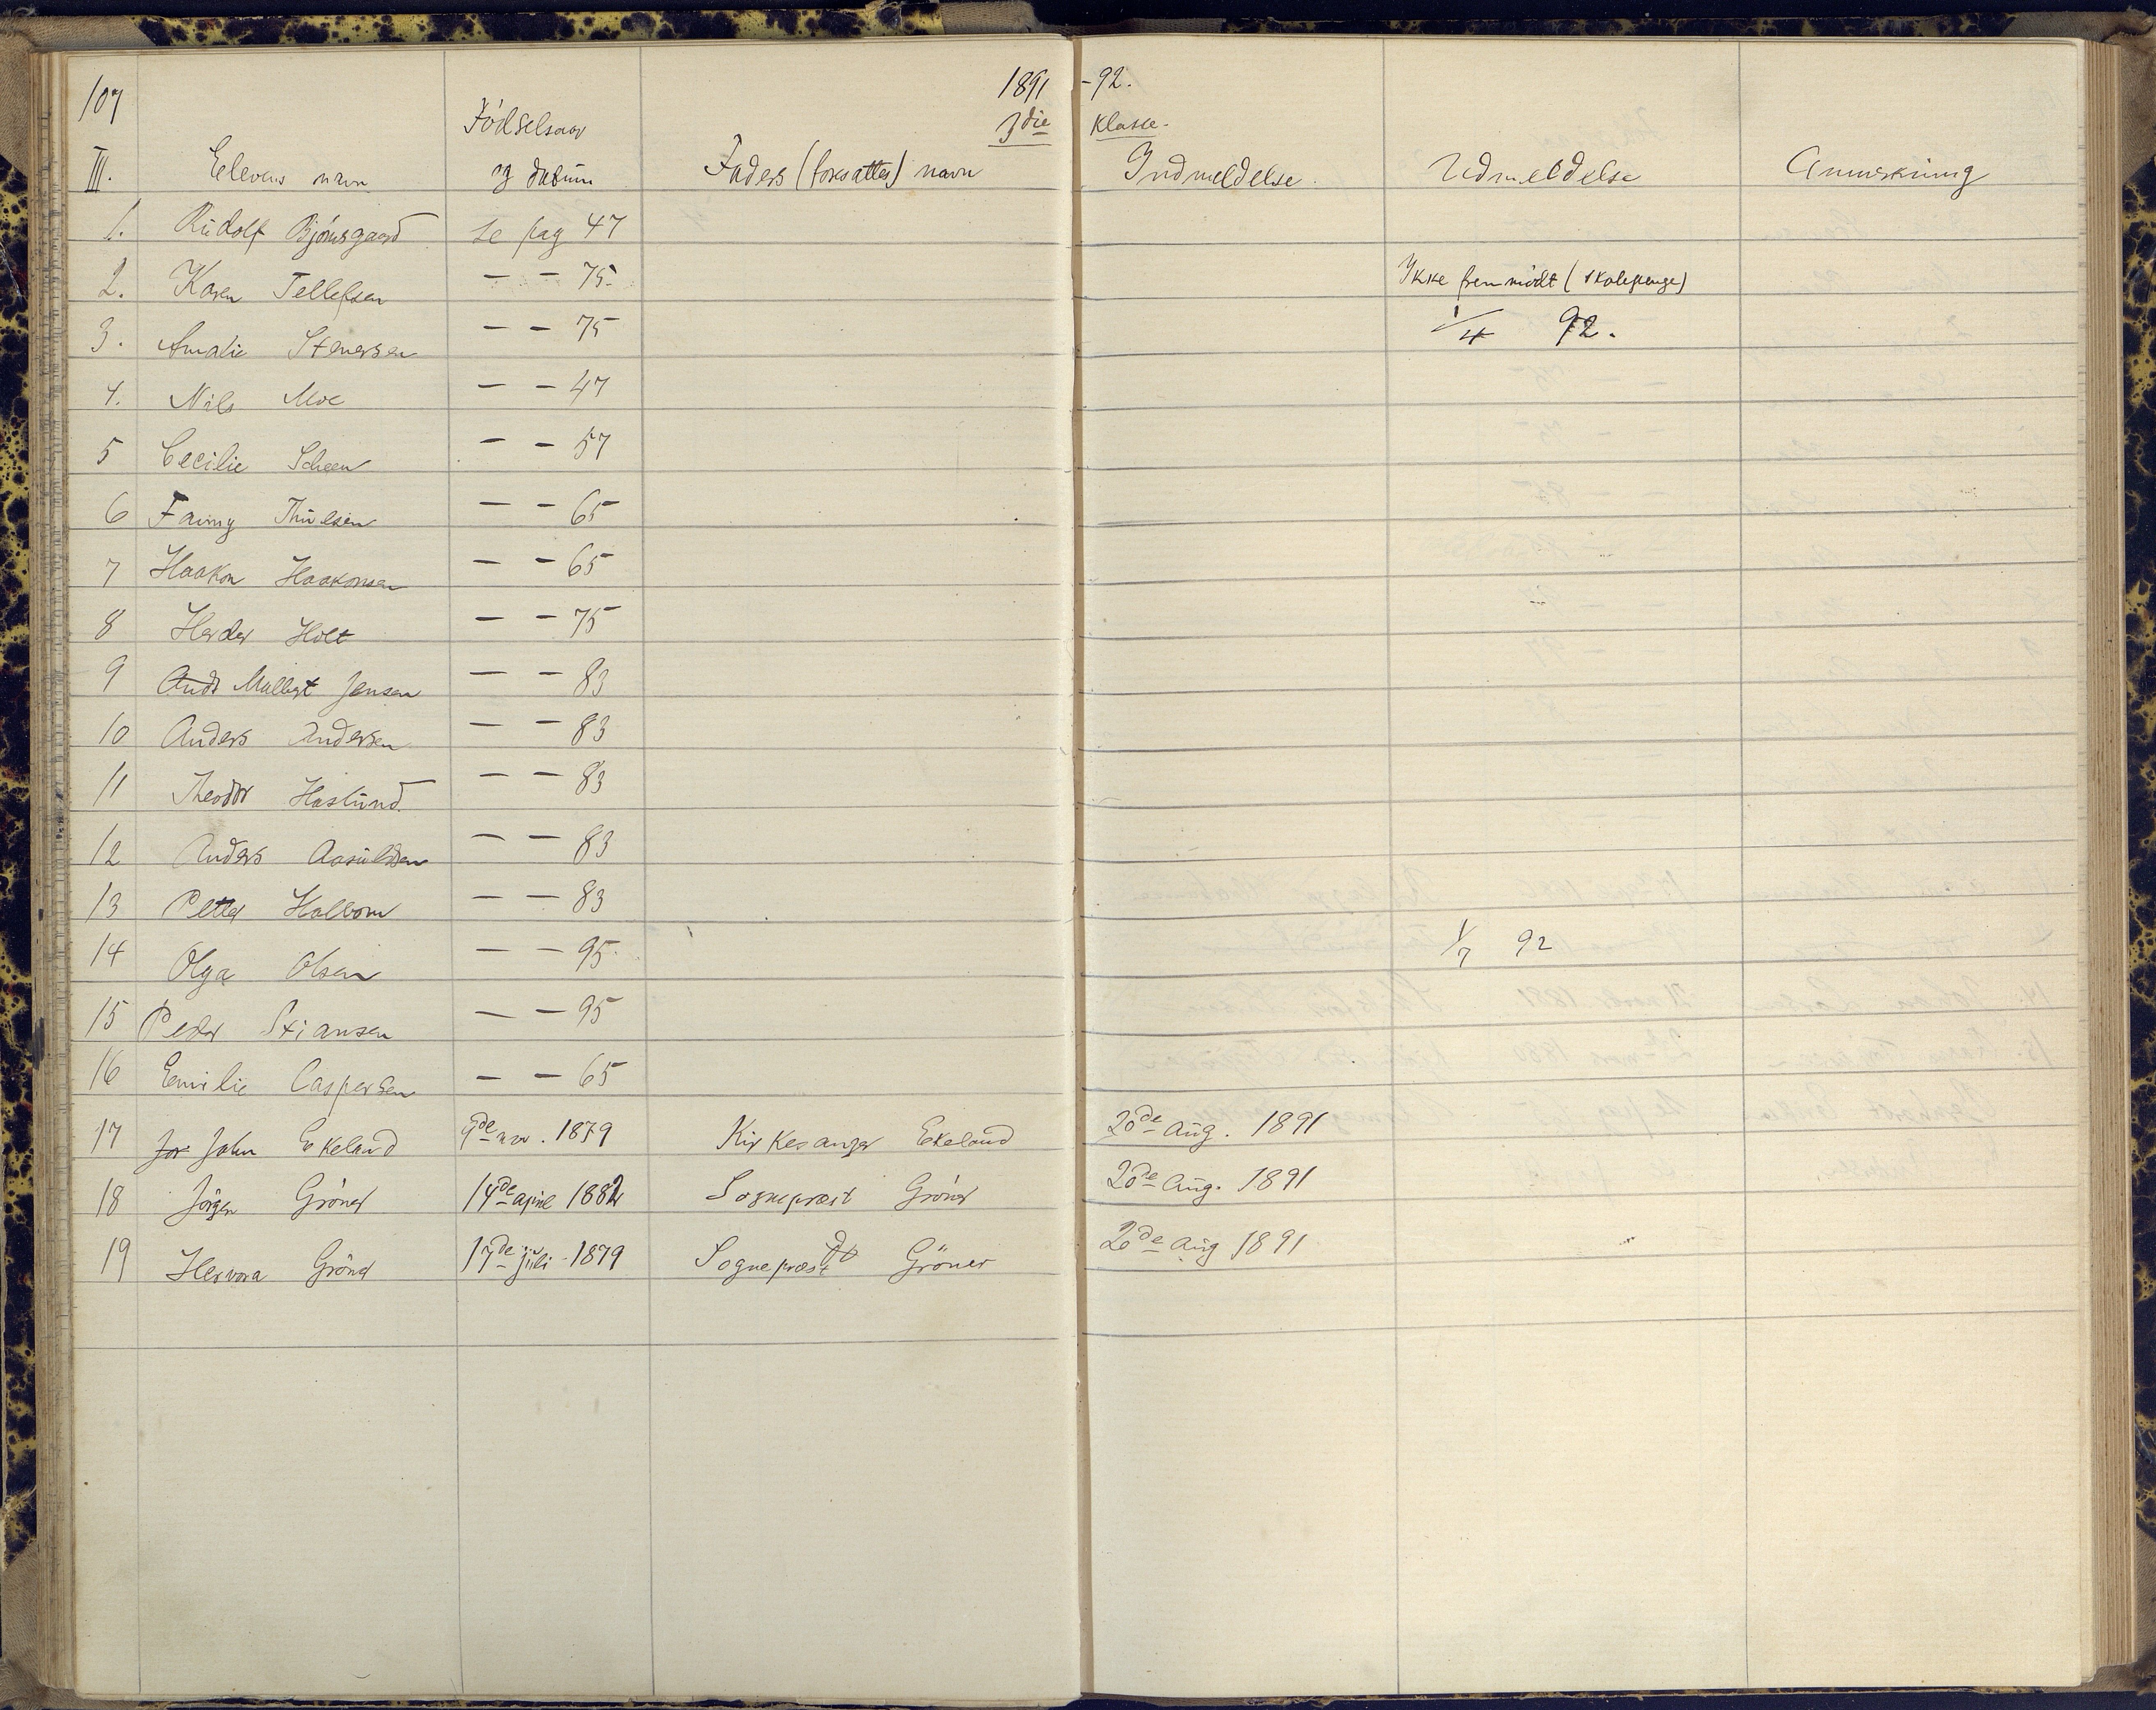 107 1891 -92.
Födselsaar 3die Klasse.
III. Elevens navn og datum Faders (foresattes) navn Indmeldelse Udmeldelse Anmerkning
1. Rudolf Bjórnsgaard se pag 47
2. Karen Tellefsen — — 75 Ikke fremmödt (skolepenge)
3. Amalie Stenersen — — 75 1/4 92.
4. Nils Moe — — 47
5 Cecilie Scheen — — 57
6 Fanny Thulesen — — 65
7 Haakon Haakonsen — — 65
8 Herder Holt — — 75
9 Ands Jensen — — 83
10 Anders Andersen — — 83
11 Theodor Haslund — — 83
12 Anders Aasuldsen — — 83
13 Petter Halvorsen — — 83
14 Olga Olsen — — 95 1/7 92
15 Peder Stiansen — — 95
16 Emilie Caspersen — — 65
17 Jor John Ekeland nov. 1879 Kirkesanger Ekeland 20de aug. 1891
18 Jörgen Gröner 14de april 1882 Sogneprest Gröner 20de aug. 1891
19 Hervora Gröner 17de juli 1879 Sogneprest Gröner 20de aug 1891